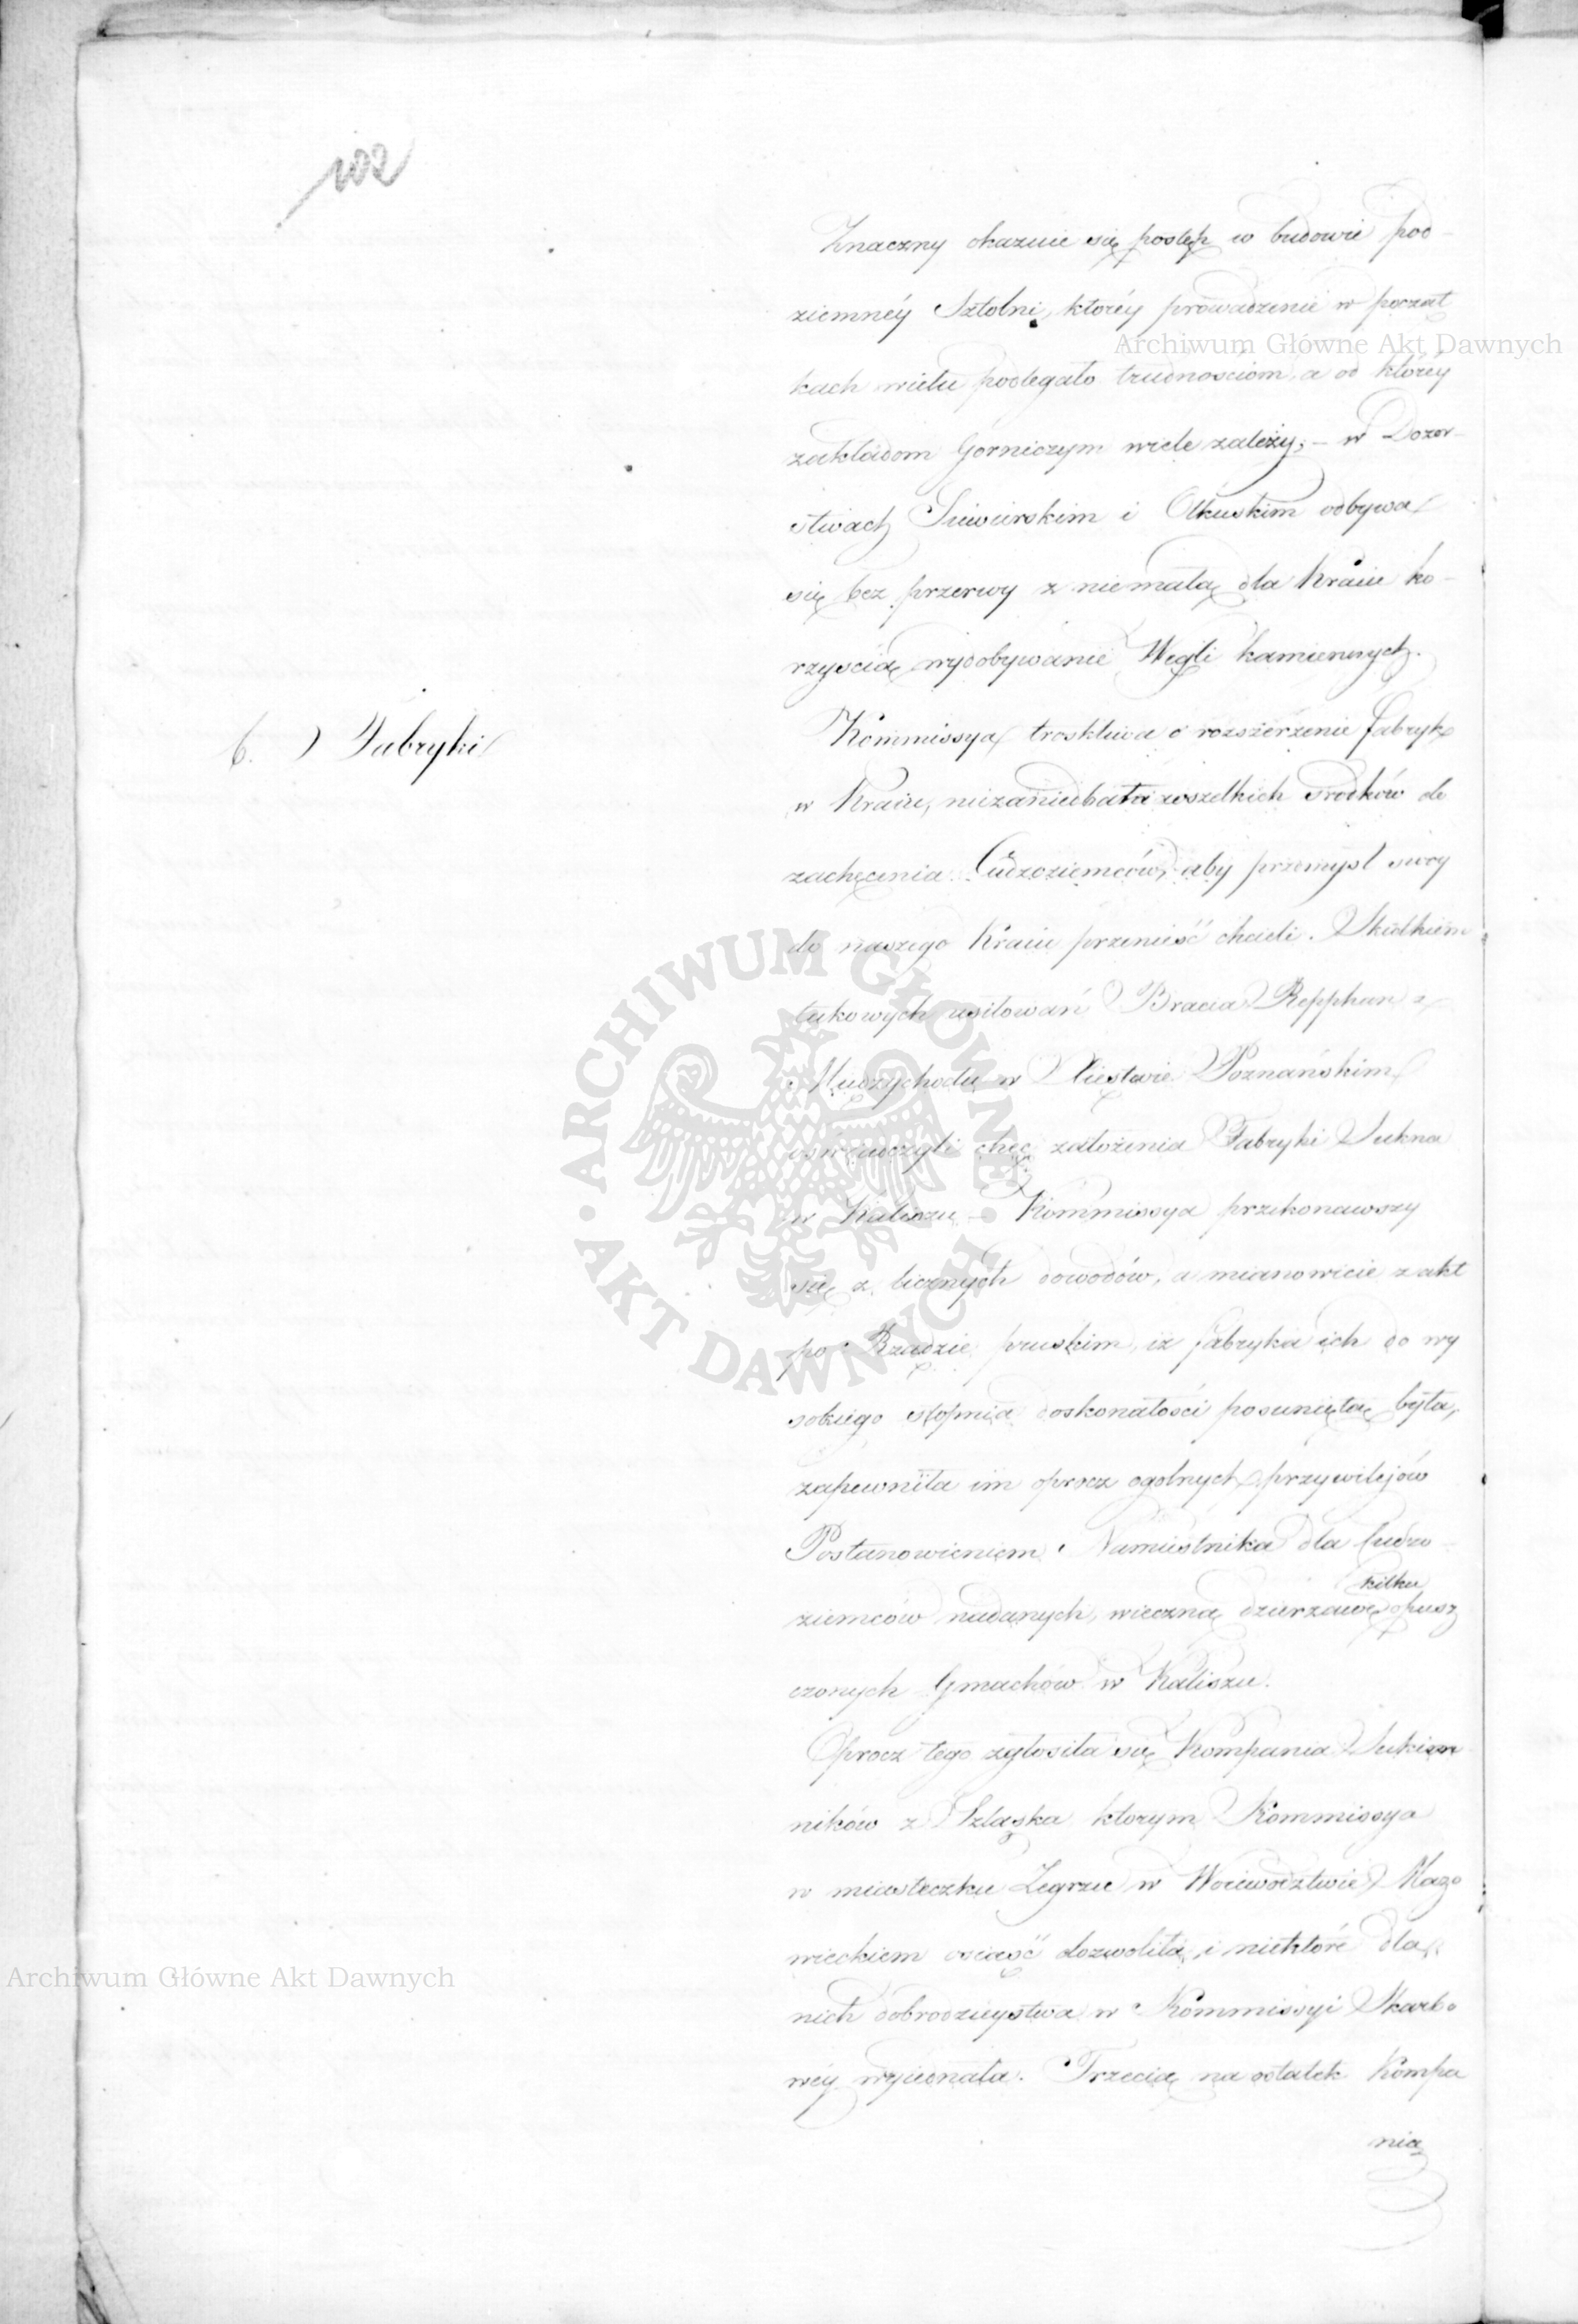 102
Znaczny okazuie się postęp w budowie pod-
ziemnéy Sztolni, któréy prowadzenie w począt
Archiwum Główne Akt Dawnych
kach wielu podlegało trudnościom, a od któréy
zakładom Gorniczym wiele zależy; – w Dozor-
stwach Siewierskim i Olkuskim odbywa
się bez przerwy z niemałą dla Kraiu ko-
rzyścią wydobywanie Węgli kamiennych.
6.) Fabryki
Kommissya troskliwa o rozszerzenie fabryk
w Kraiu, niezaniedbała wszelkich srodków do
zachęcenia Cudzoziemców, aby przemysł swóy
do naszego Kraiu przenieść chcieli. Skutkiem
takowych usiłowań Bracia Repphan z
Międzychodu w Xięstwie Poznańskim
oświadczyli chęć założenia Fabryki Sukna
w Kaliszu – Kommissya przekonawszy
się z licznych dowodów, a mianowicie z akt
po Rządzie pruskim, iż fabryka ich do wy
sokiego stopnia doskonałości posuniętą była,
zapewniła im oprocz ogolnych przywilejów
Postanowieniem Namiestnika dla Cudzo-
kilku
ziemców nadanych, wieczną dzierzawę opusz
czonych Gmachów w Kaliszu.
Oprocz tego zgłosiła się Kompania Sukien
ników z Szląska ktorym Kommissya
w miasteczku Zegrzu w Woiewodztwie Mazo
wieckiem osiąść dozwoliła, i niektóre dla
Archiwum Główne Akt Dawnych
nich dobrodzieystwa w Kommissyi Skarbo
wéy wyiednała. Trzecia na ostatek Kompa
nia
ARCHIWUM GŁÓWNE AKT DAWNYCH